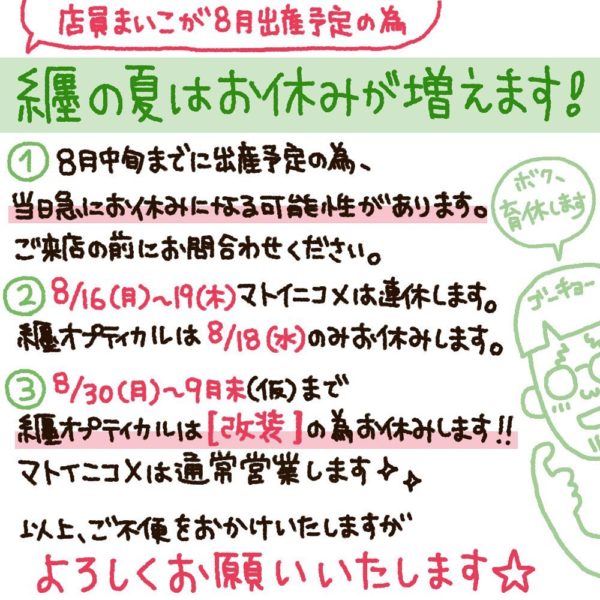 店員まいこが8月出産予定の為
纏の夏はお休みが増えます!
① 8月中旬までに出産予定の為、
当日急にお休みになる可能性があります。
ご来店の前にお問合わせください。
ボク、
育休します
ゴーキョー
② 8/16(月)~19(木)マトイニコメは連休します。
纏オプティカルは8/18(水)のみお休みします。
③ 8/30(月)~9月末(仮)まで
纏オプティカルは[改装]の為お休みします!!
マトイニコメは通常営業します✧✧
以上、ご不便をおかけいたしますが
よろしくお願いいたします☆